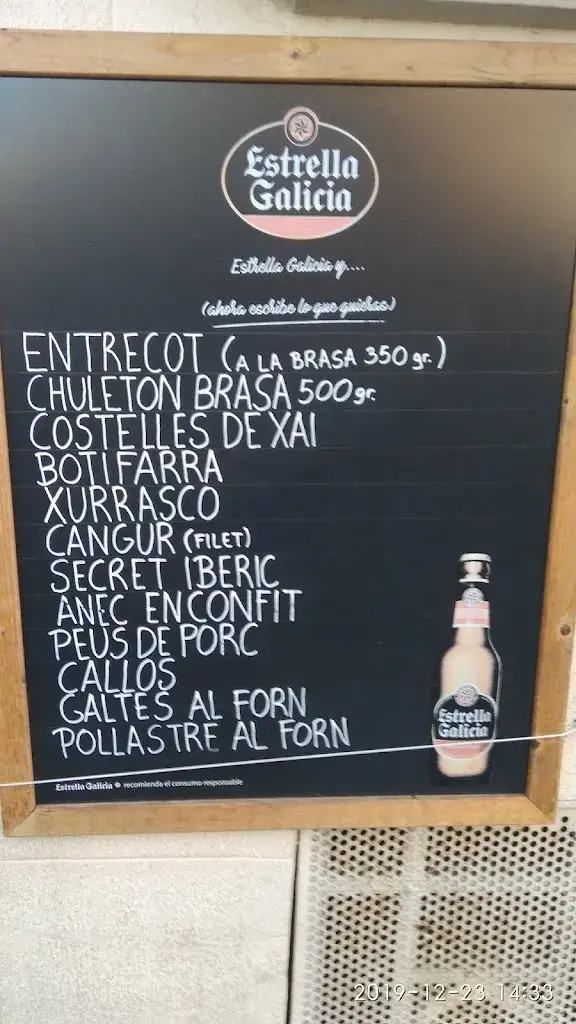 Estrella
Galicia
Estrella Galicia y....
(ahora escribe lo que quieras)
ENTRECOT (A LA BRASA 350 gr.)
CHULETON BRASA 500 gr.
COSTELLES DE XAI
BOTIFARRA
XURRASCO
CANGUR (FILET)
SECRET IBERIC
ANEC ENCONFIT
PEUS DE PORC
CALLOS
GALTES AL FORN
POLLASTRE AL FORN
Estrella
Galicia
Estrella Galicia recomienda el consumo responsable
2019-12-23 14:33